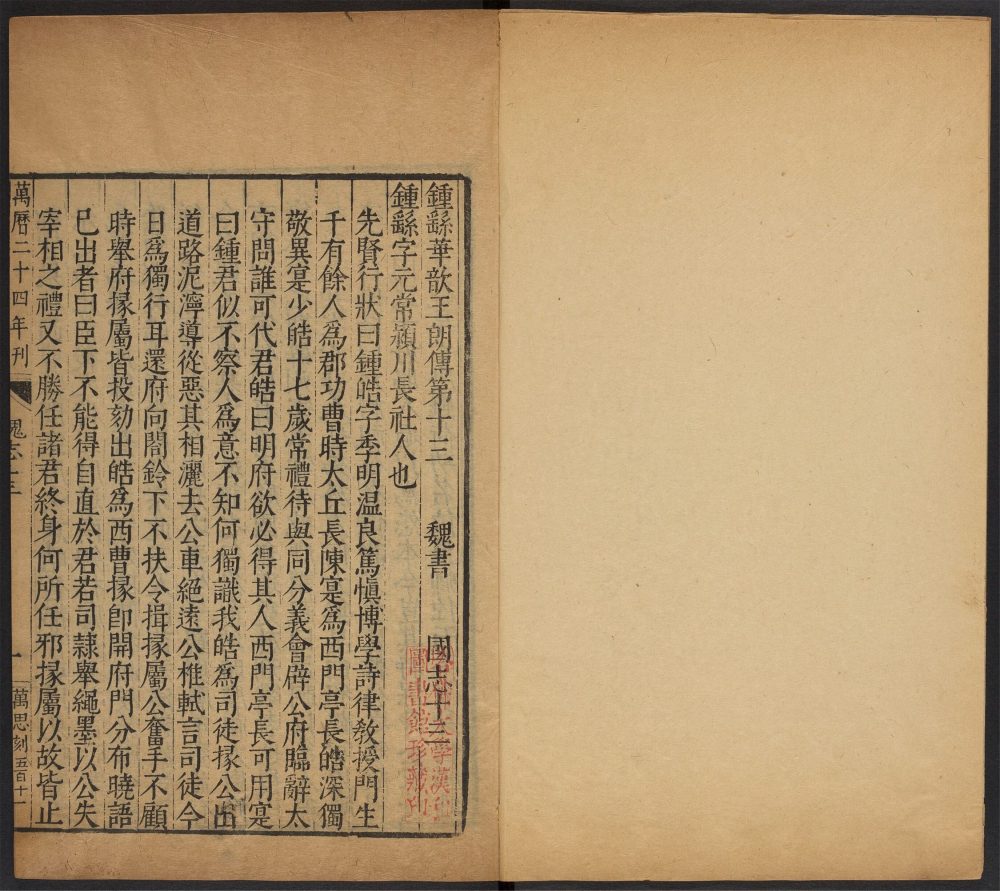 鍾繇華歆王朗傳第十三 魏書 國志十三
鍾繇字元常潁川長社人也
先賢行狀曰鍾皓字季明温良篤愼博學詩律敎授門生
千有餘人爲郡功曹時太丘長陳寔爲西門亭長皓深獨
敬異寔少皓十七歲常禮待與同分義會辟公府臨辭太
守問誰可代君皓曰明府欲必得其人西門亭長可用寔
曰鍾君似不察人爲意不知何獨識我皓爲司徒掾公出
道路泥濘導從惡其相灑去公車絕遠公椎軾言司徒今
日爲獨行耳還府向閤鈴下不扶令揖掾屬公奮手不顧
時舉府掾屬皆投劾出皓爲西曹掾卽開府門分布曉語
已出者曰臣下不能得自直於君若司隷舉繩墨以公失
宰相之禮又不勝任諸君終身何所任邪掾屬以故皆止
萬曆二十四年刊 魏志十三 一 萬思刻五百十一
圖書館珍藏印